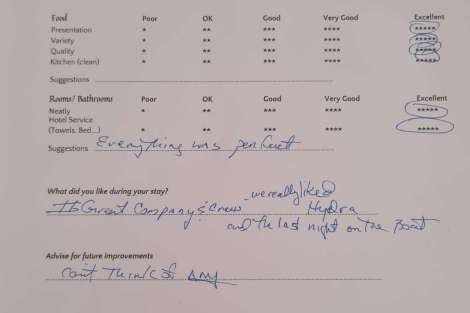 Food Poor OK Good Very Good Excellent
Presentation * ** *** **** *****
Variety * ** *** **** *****
Quality * ** *** **** *****
Kitchen (clean) * ** *** **** *****
Suggestions
Rooms/ Bathrooms Poor OK Good Very Good Excellent
Neatly * ** *** **** *****
Hotel Service
(Towels, Bed...) * ** *** **** *****
Suggestions Everything was perfect
What did you like during your stay?
we really liked
Great Company & Crew Hydra
and the last night on the Boat
Advise for future improvements
Can't Think of Any